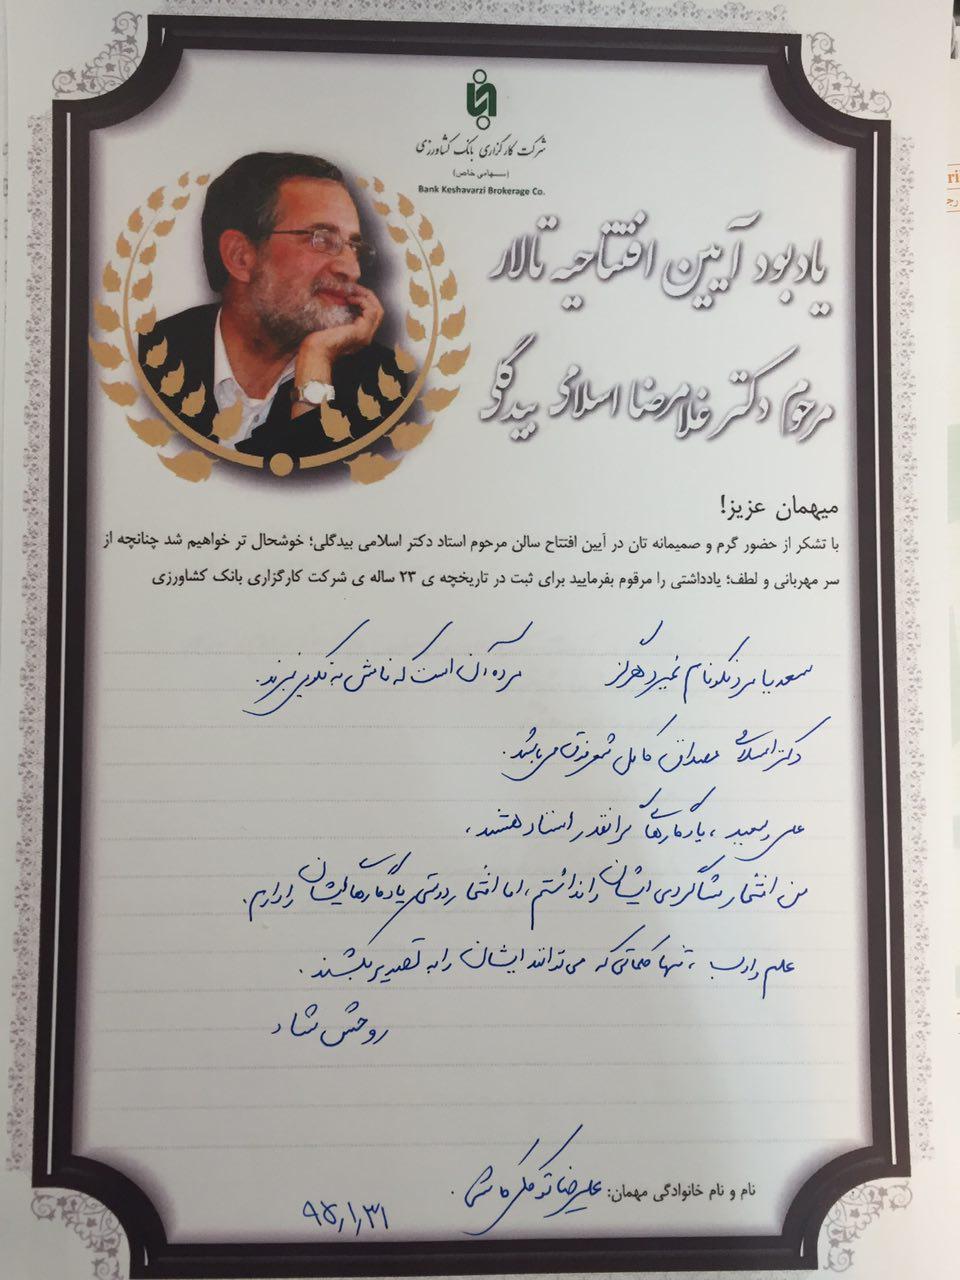 شرکت کارگزاری بانک کشاورزی
(سهامی خاص)
Bank Keshavarzi Brokerage Co.
یادبود آیین افتتاحیه تالار
مرحوم دکتر غلامرضا اسلامی بیدگلی
میهمان عزیز!
با تشکر از حضور گرم و صمیمانه تان در آیین افتتاح سالن مرحوم استاد دکتر اسلامی بیدگلی؛ خوشحال تر خواهیم شد چنانچه از
سر مهربانی و لطف؛ یادداشتی را مرقوم بفرمایید برای ثبت در تاریخچه ی ۲۳ ساله ی شرکت کارگزاری بانک کشاورزی
سعدیا مرد نکونام نمیرد هرگز مرده آن است که نامش به نکویی نبرند.
دکتر اسلامی مصداق کامل شعر فوق می باشد.
علی و سعید، یادگارهای گرانقدر استاد هستند،
من افتخار شاگردی ایشان را نداشتم، اما افتخار دوستی یادگارهای ایشان را دارم.
علم و ادب، تنها کلماتی که می تواند ایشان را به تصویر بکشند.
روحش شاد
نام و نام خانوادگی مهمان: علیرضا توکلی کاشی
۹۵/۱/۳۱